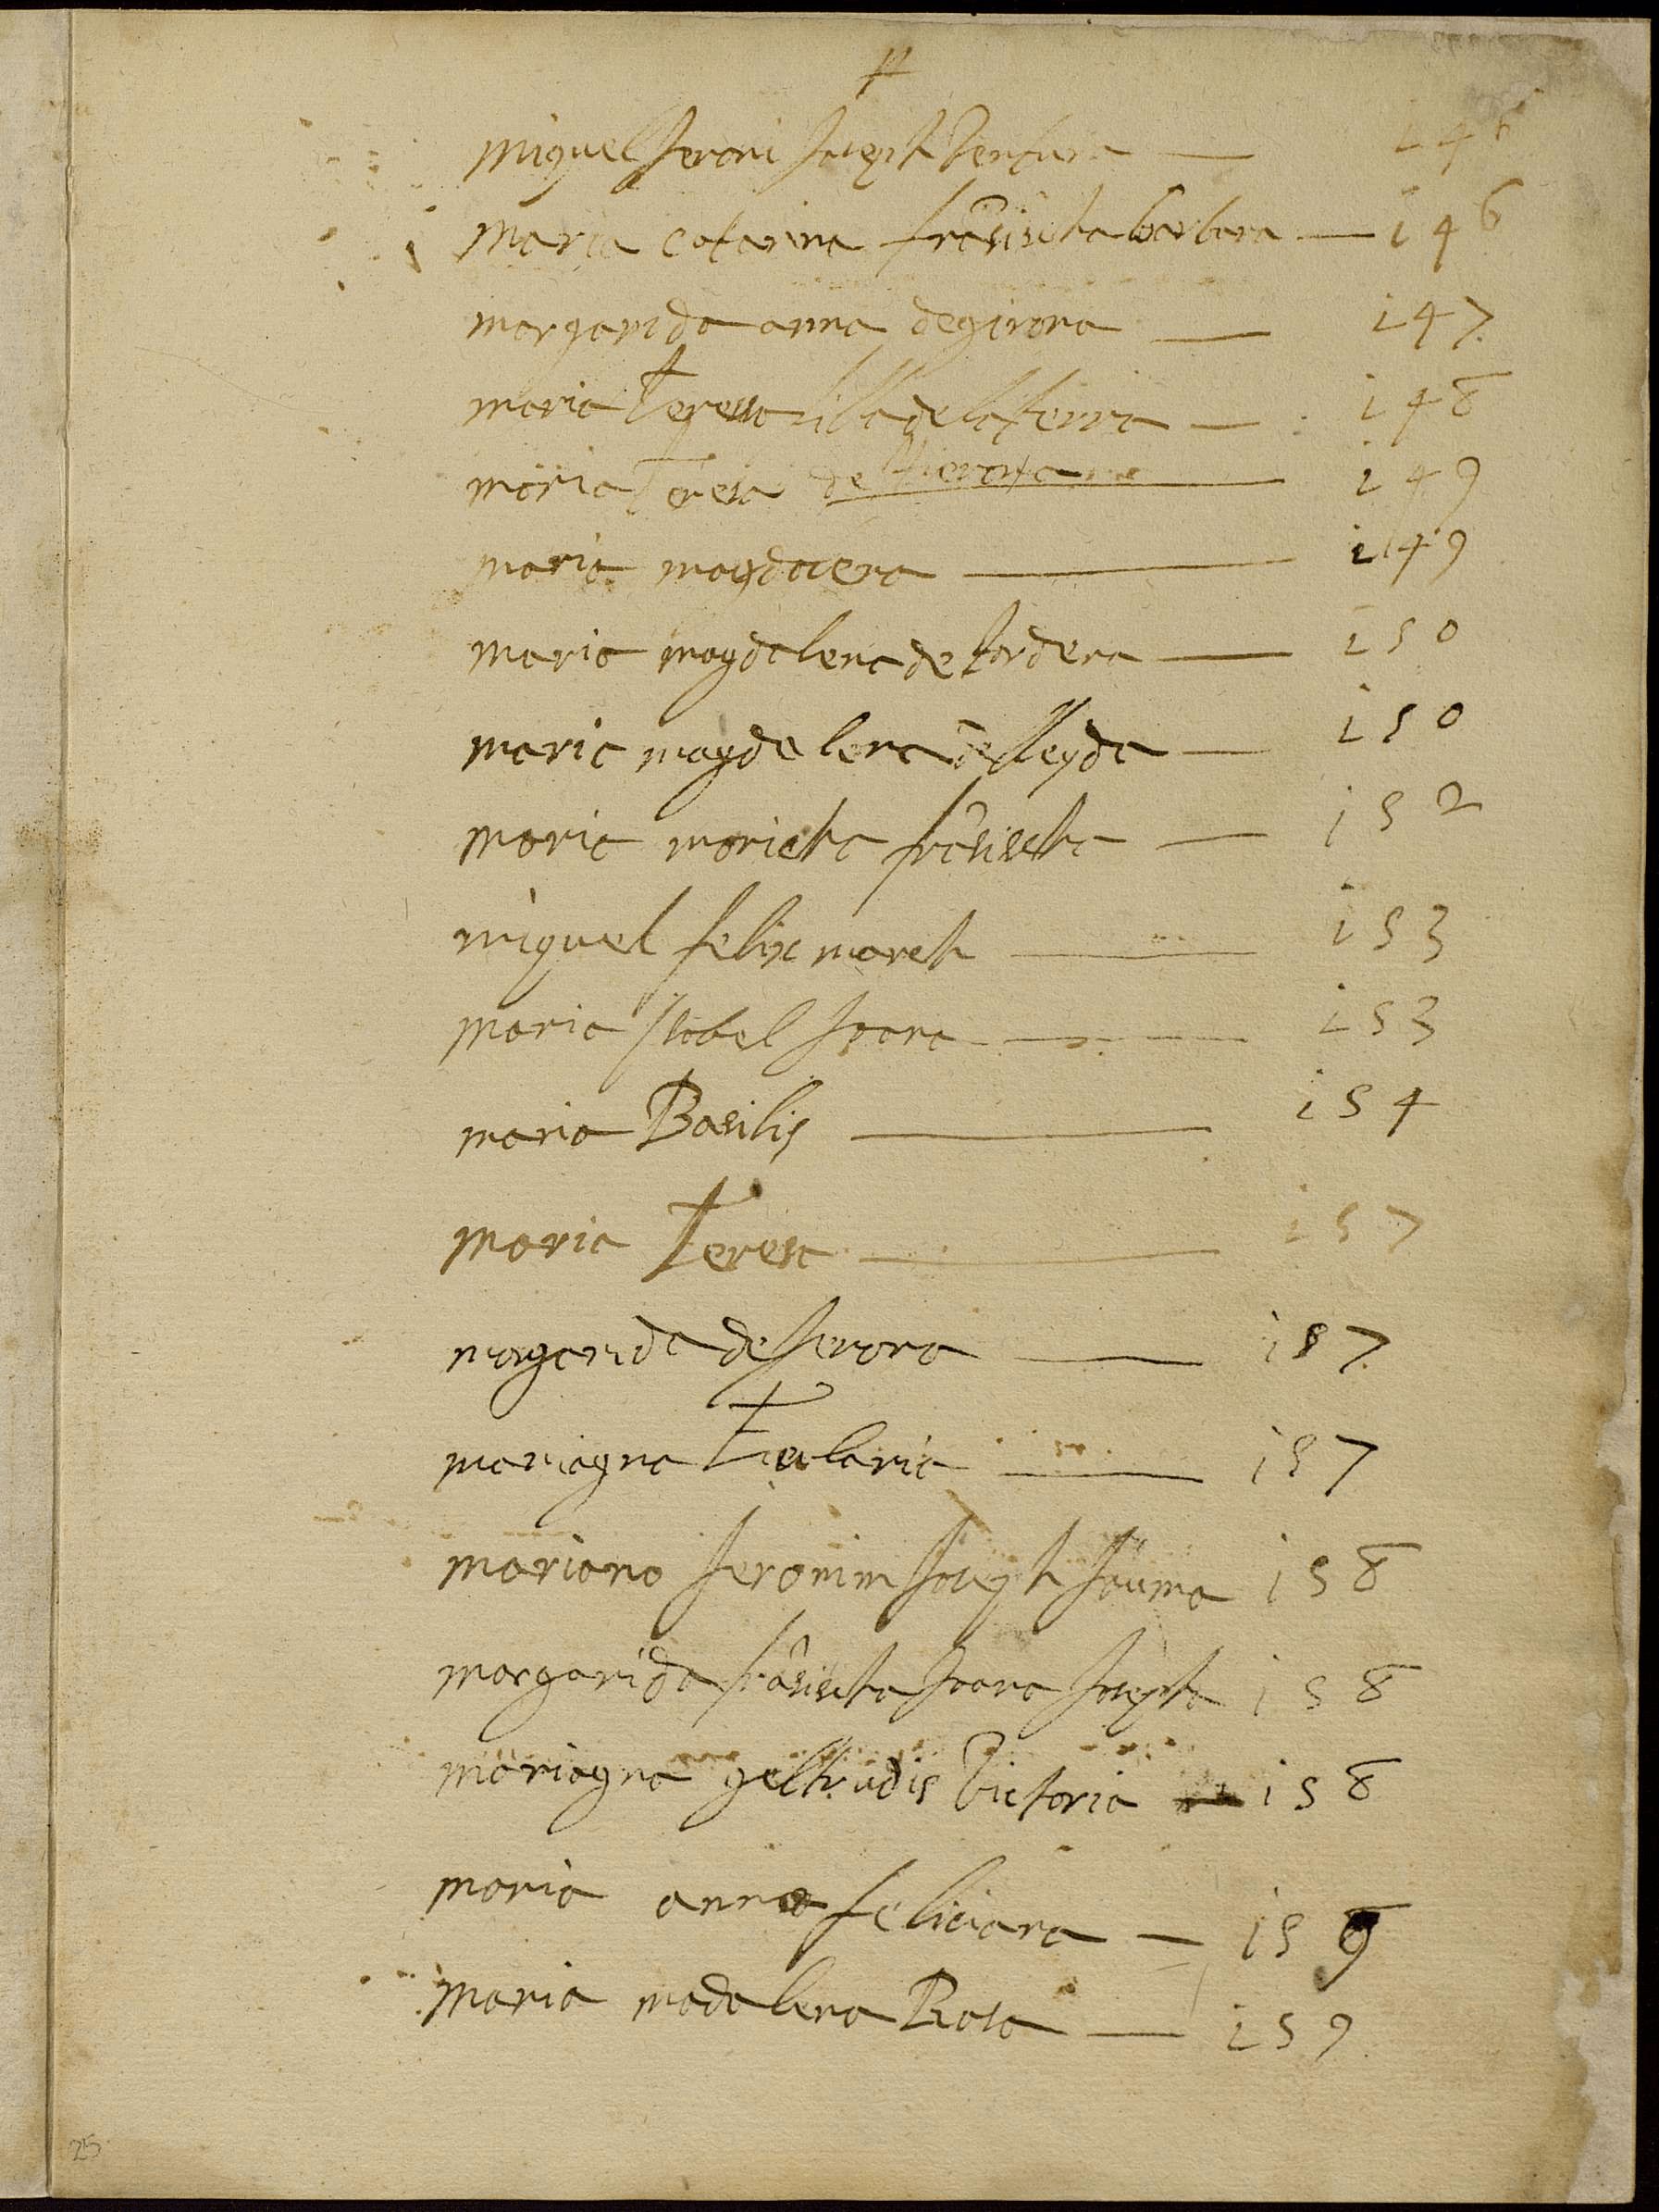 miquel Jeroni Joseph Ventura — 146
maria catarina frãsischa barbara — 146
margarida anna de girona — 147.
maria Teresa — 148
maria Teresa de — 149
maria magdalena — 149
maria magdalena de tordera — 150
maria magdalena de lleyda — 150
maria maricha frãsischa — 152
miquel felix march — 153
maria Isabel Joana — 153
maria Basilis — 154
maria Teresa — 157
margarida de Jerona — 157.
mariagna Eularia — 157
mariano Jeronim Joseph Jauma 158
margarida frãsischa Joana Josepha 158
mariagna geltrudis Victoria — 158
maria anna feliciana — 159
maria madalena Rosa — 159
25